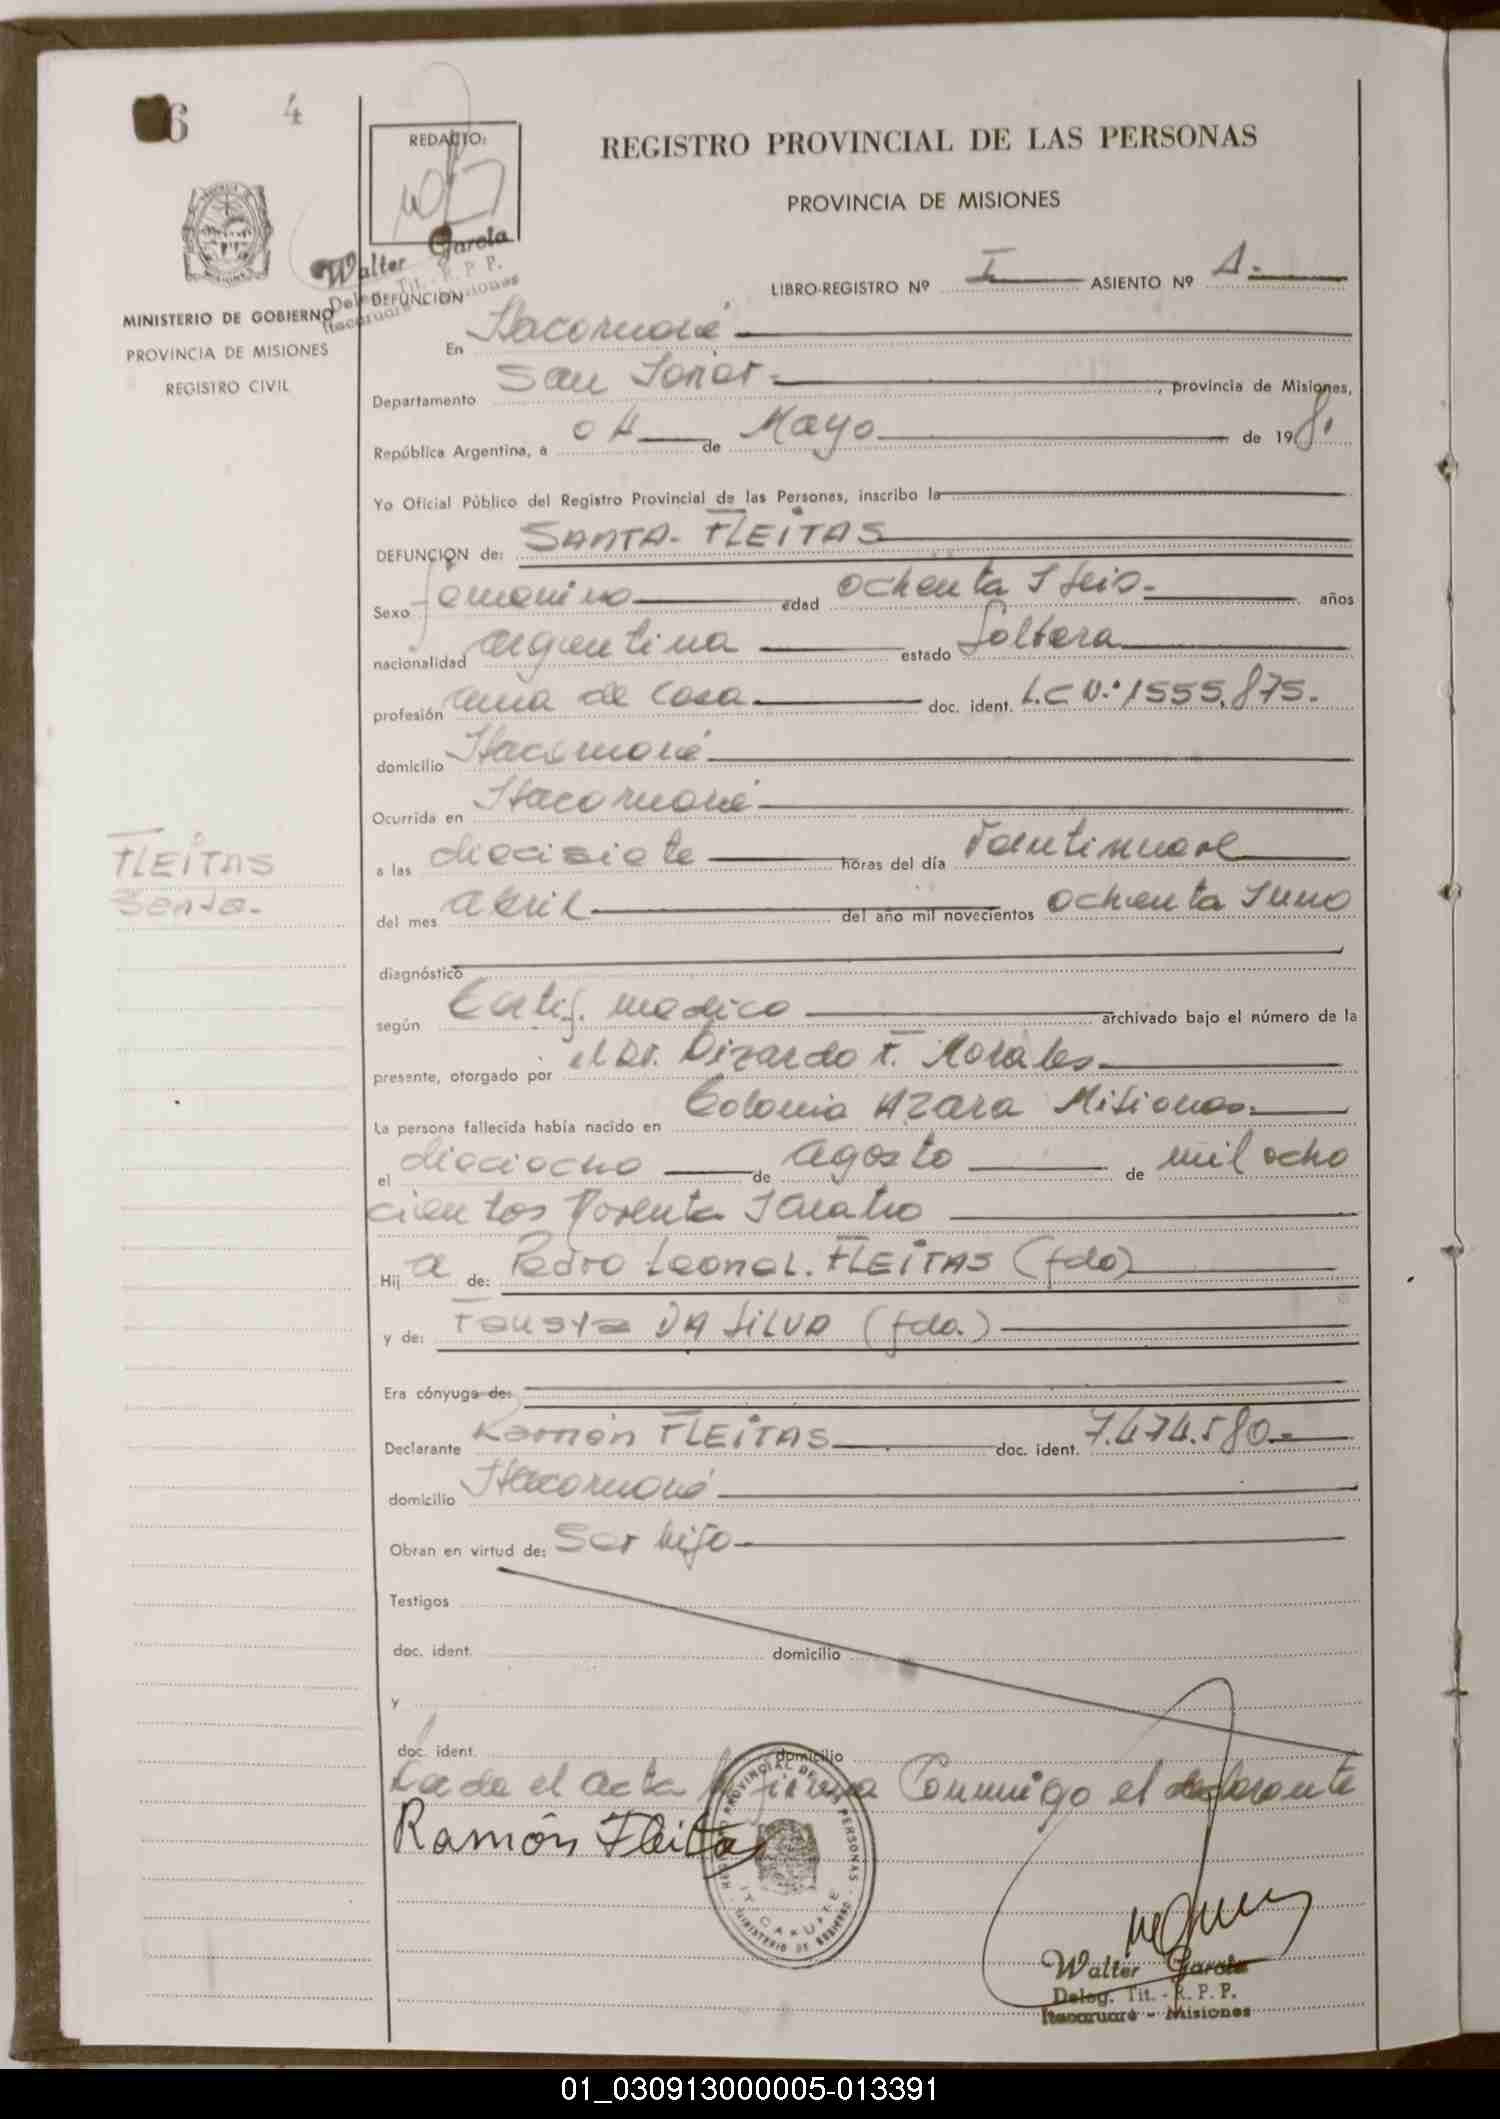 6 4
REDACTO:
REGISTRO PROVINCIAL DE LAS PERSONAS
PROVINCIA DE MISIONES
Walter García
Deleg. Tit. - R. P. P.
Itacaruaré - Misiones
LIBRO-REGISTRO Nº I ASIENTO Nº 4.-
MINISTERIO DE GOBIERNO
PROVINCIA DE MISIONES
REGISTRO CIVIL
DEFUNCION
En Itacaruaré
Departamento San Javier-, provincia de Misiones,
República Argentina, a 04 de Mayo de 1981
Yo Oficial Público del Registro Provincial de las Personas, inscribo la
DEFUNCION de: SANTA- FLEITAS
Sexo femenino edad ochenta y seis.- años
nacionalidad argentina estado Soltera
profesión ama de casa doc. ident. L.C Nº 1555.875.-
domicilio Itacaruaré
Ocurrida en Itacaruaré
FLEITAS
Santa.-
a las diecisiete horas del día veintinueve
del mes abril del año mil novecientos ochenta y uno
diagnóstico
según Certif. medico archivado bajo el número de la
presente, otorgado por el Dr. Dizardo F. Morales
La persona fallecida había nacido en Colonia Azara Misiones.
el dieciocho de agosto de mil ocho
cientos noventa y cuatro
Hij a de: Pedro Leonel. FLEITAS (fdo)
y de: Fausta DA SILVA (fda.)
Era cónyuge de:
Declarante Ramón FLEITAS doc. ident. 7.474.580.-
domicilio Itacaruaré
Obran en virtud de: Ser hijo
Testigos
doc. ident. domicilio
y
doc. ident. domicilio
Leida el acta la firma Conmigo el declarante
Ramón Fleitas
REGISTRO PROVINCIAL DE LAS PERSONAS
ITACARUARE
MINISTERIO DE GOBIERNO
Walter García
Deleg. Tit. - R. P. P.
Itacaruaré - Misiones
01_030913000005-013391